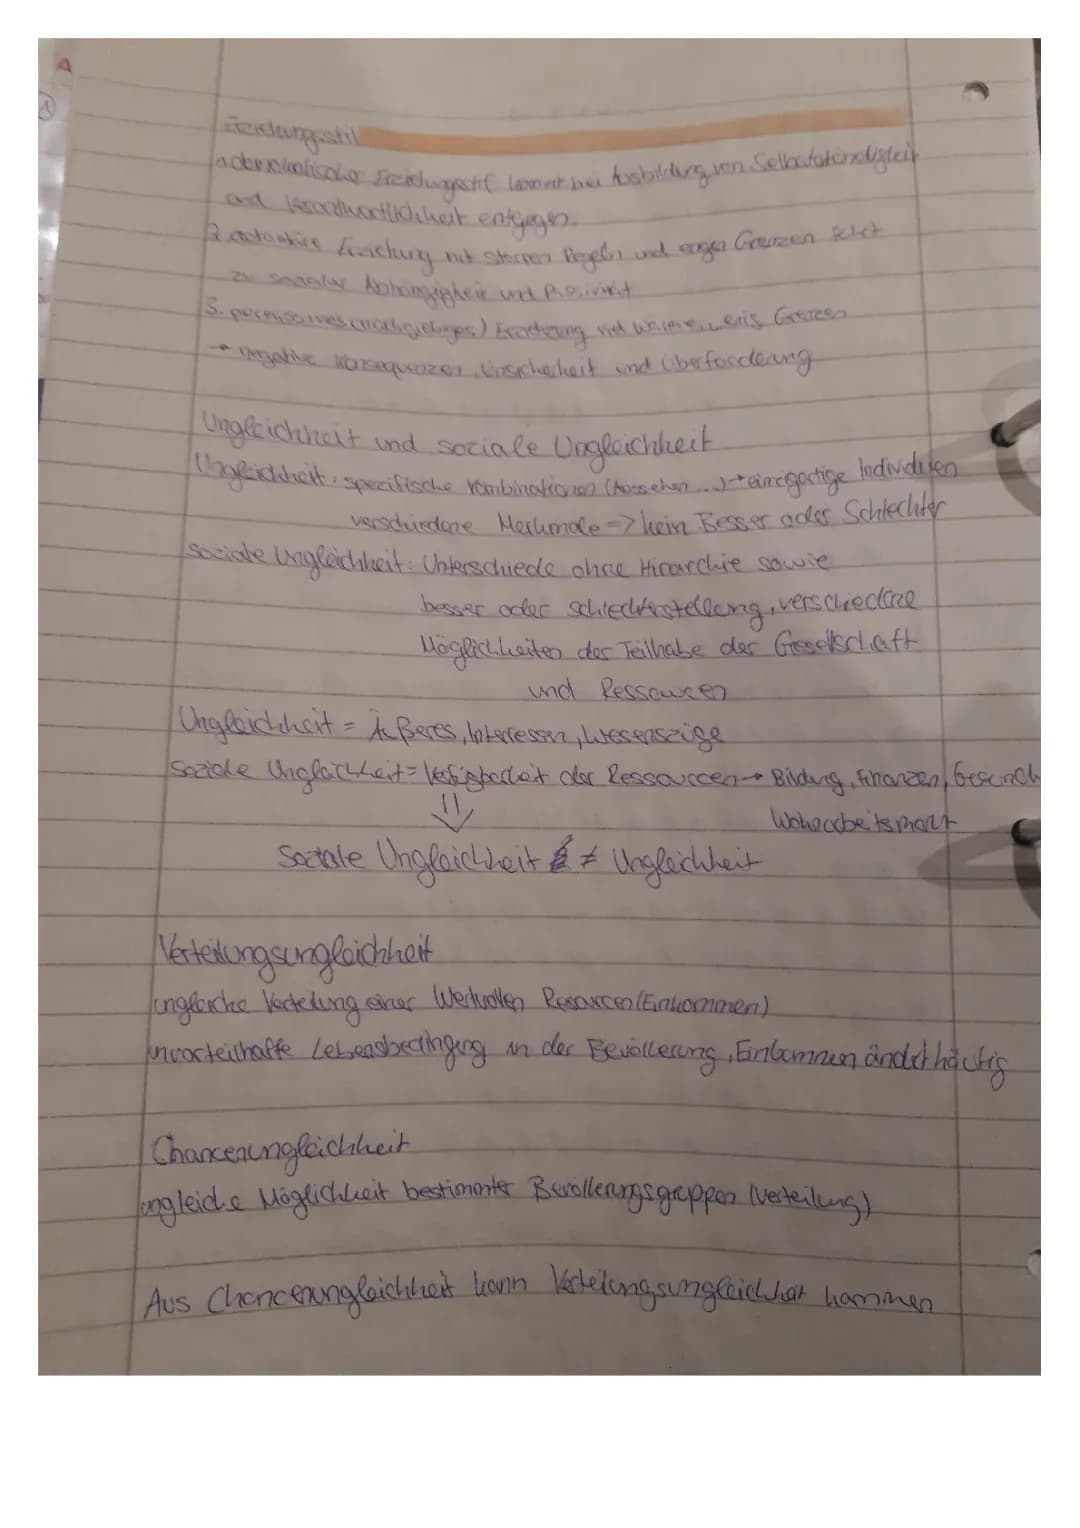 Erziehungsstil
1. demokratischer Erziehungsstil kommt bei Ausbildung von Selbstständigkeit
und Verantwortlichkeit entgegen
2. autoritäre Erziehung mit starren Regeln und engen Grenzen führt
zu sozialer Abhängigkeit und Passivität
3. permissives (nachgiebiges) Erziehung mit Grenzen
→ negative Konsequenzen Unsicherheit und Überforderung
Ungleichheit und soziale Ungleichheit
Ungleichheit: spezifische Kombinationen (Aussehen ...) → einzigartige Individuen
verschiedene Merkmale => kein Besser oder Schlechter
soziale Ungleichheit: Unterschiede ohne Hirarchie sowie
besser oder schlechterstellung, verschiedene
Möglichkeiten der Teilhabe der Gesellschaft
und Ressourcen
Ungleichheit = Äußeres, Interessen, Wesenszüge
Soziale Ungleichheit = Verfügbarkeit der Ressourcen → Bildung, Finanzen, Gesundh
Soziale Ungleichheit ≠ Ungleichheit
Verteilungsungleichheit
ungleiche Verteilung einer Wertvollen Resourcen (Einkommen)
unvorteilhafte Lebensbedingung in der Bevölkerung, Einkommen ändert häufig
Chancenungleichheit
ungleiche Möglichkeit bestimmter Bevölkerungsgruppen (Verteilung)
Aus Chancenungleichheit kann Verteilungsungleichheit kommen